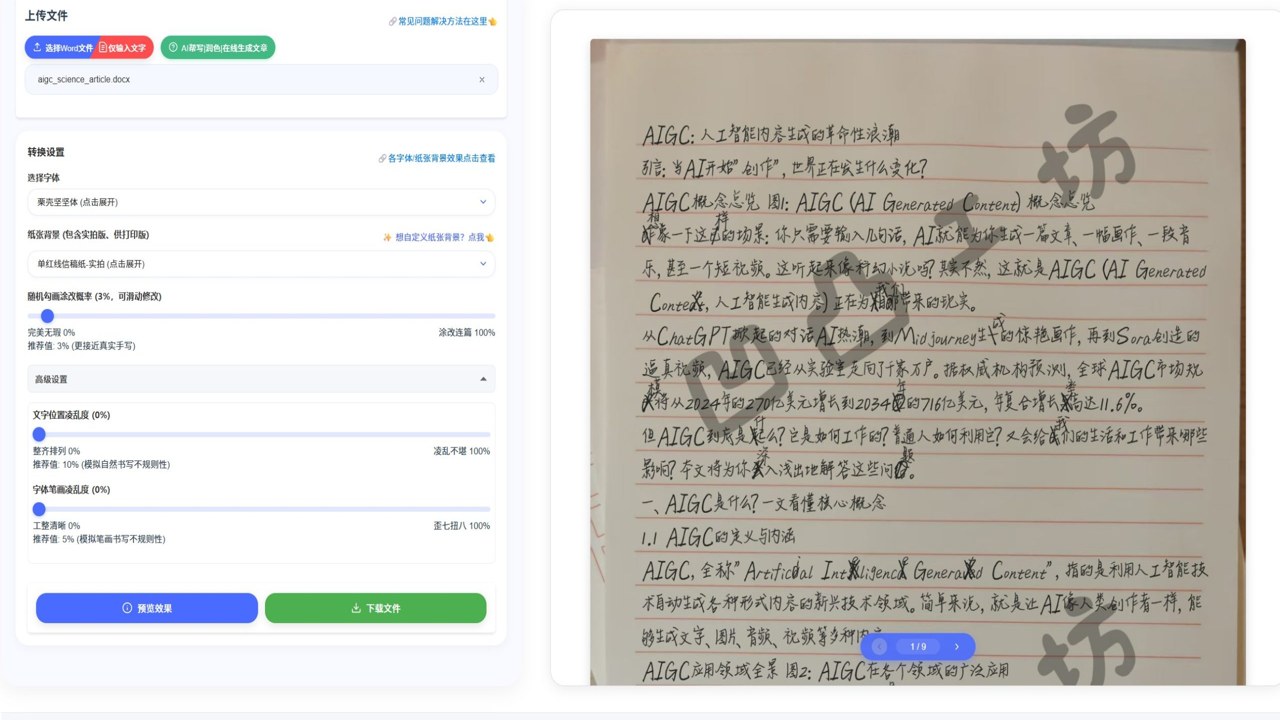 上传文件
常见问题解决方法在这里
选择Word文件
仅输入文字
AI帮写|润色|在线生成文章
aigc_science_article.docx
×
转换设置
各字体/纸张背景效果点击查看
选择字体
栗壳坚坚体 (点击展开)
纸张背景 (包含实拍版、供打印版)
想自定义纸张背景？点我
单红线信稿纸-实拍 (点击展开)
随机勾画涂改概率 (3%，可滑动修改)
完美无瑕 0%
涂改连篇 100%
推荐值: 3% (更接近真实手写)
高级设置
文字位置凌乱度 (0%)
整齐排列 0%
凌乱不堪 100%
推荐值: 10% (模拟自然书写不规则性)
字体笔画凌乱度 (0%)
工整清晰 0%
歪七扭八 100%
推荐值: 5% (模拟笔画书写不规则性)
预览效果
下载文件
AIGC：人工智能内容生成的革命性浪潮
引言：当AI开始"创作"，世界正在发生什么变化？
AIGC概念总览 图1：AIGC (AI Generated Content) 概念总览
想象一下这样的场景：你只需要输入几句话，AI就能为你生成一篇文章、一幅画作、一段音
乐，甚至一个短视频。这听起来像科幻小说吗？其实不然，这就是AIGC (AI Generated
Content，人工智能生成内容) 正在为我们带来的现实。
从ChatGPT掀起的对话AI热潮，到Midjourney生成的惊艳画作，再到Sora创造的
逼真视频，AIGC已经从实验室走向了千家万户。据权威机构预测，全球AIGC市场规
模将从2024年的270亿美元增长到2034年的716亿美元，年复合增长率高达11.6%。
但AIGC到底是什么？它是如何工作的？普通人如何利用它？又会给我们的生活和工作带来哪些
影响？本文将为你深入浅出地解答这些问题。
一、AIGC是什么？一文看懂核心概念
1.1 AIGC的定义与内涵
AIGC，全称"Artificial Intelligence Generated Content"，指的是利用人工智能技
术自动生成各种形式内容的新兴技术领域。简单来说，就是让AI像人类创作者一样，能
够生成文字、图片、音频、视频等多种内
1 / 9
AIGC应用领域全景 图2：AIGC在各个领域的广泛应用
凹凸工坊
坊